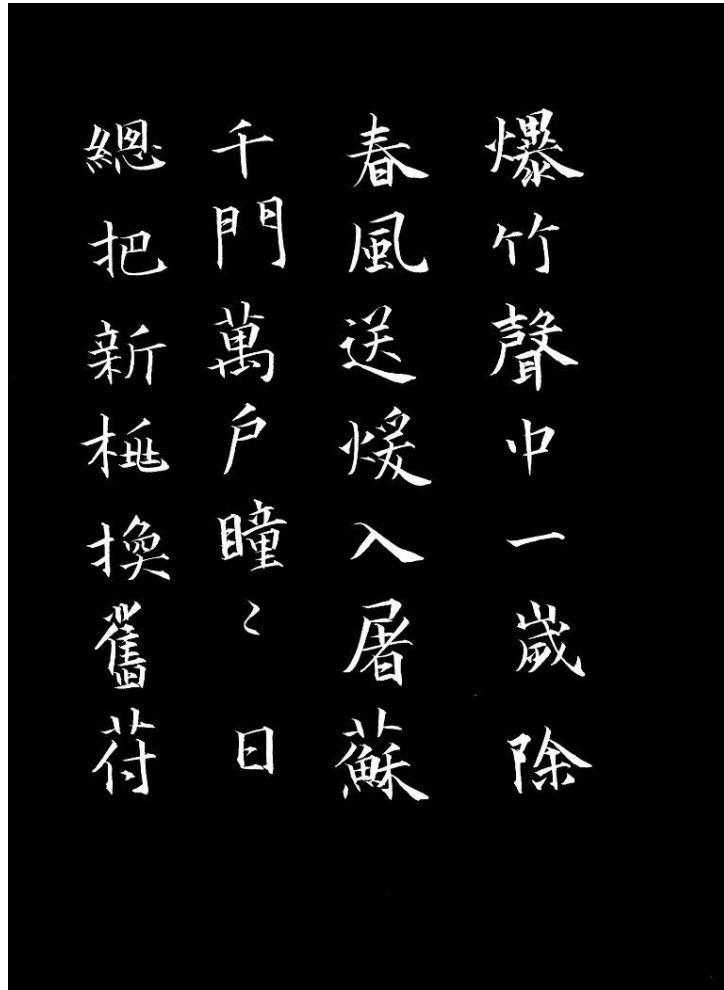 爆竹聲中一歲除
春風送煖入屠蘇
千門萬戶瞳〻日
總把新桃換舊苻